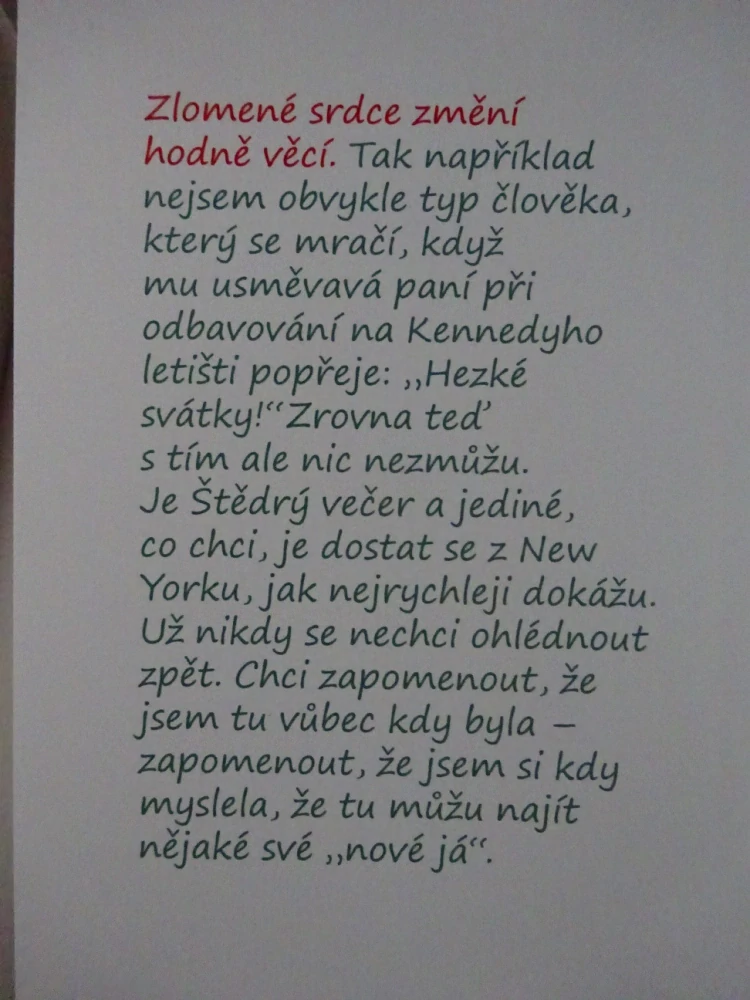 Zlomené srdce změní
hodně věcí. Tak například
nejsem obvykle typ člověka,
který se mračí, když
mu usměvavá paní při
odbavování na Kennedyho
letišti popřeje: „Hezké
svátky!“ Zrovna teď
s tím ale nic nezmůžu.
Je Štědrý večer a jediné,
co chci, je dostat se z New
Yorku, jak nejrychleji dokážu.
Už nikdy se nechci ohlédnout
zpět. Chci zapomenout, že
jsem tu vůbec kdy byla –
zapomenout, že jsem si kdy
myslela, že tu můžu najít
nějaké své „nové já“.